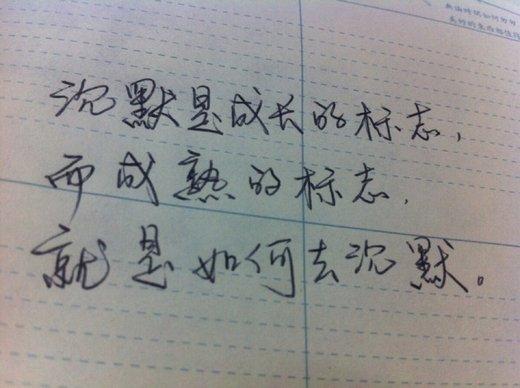 沉默是成长的标志，
而成熟的标志，
就是如何去沉默。